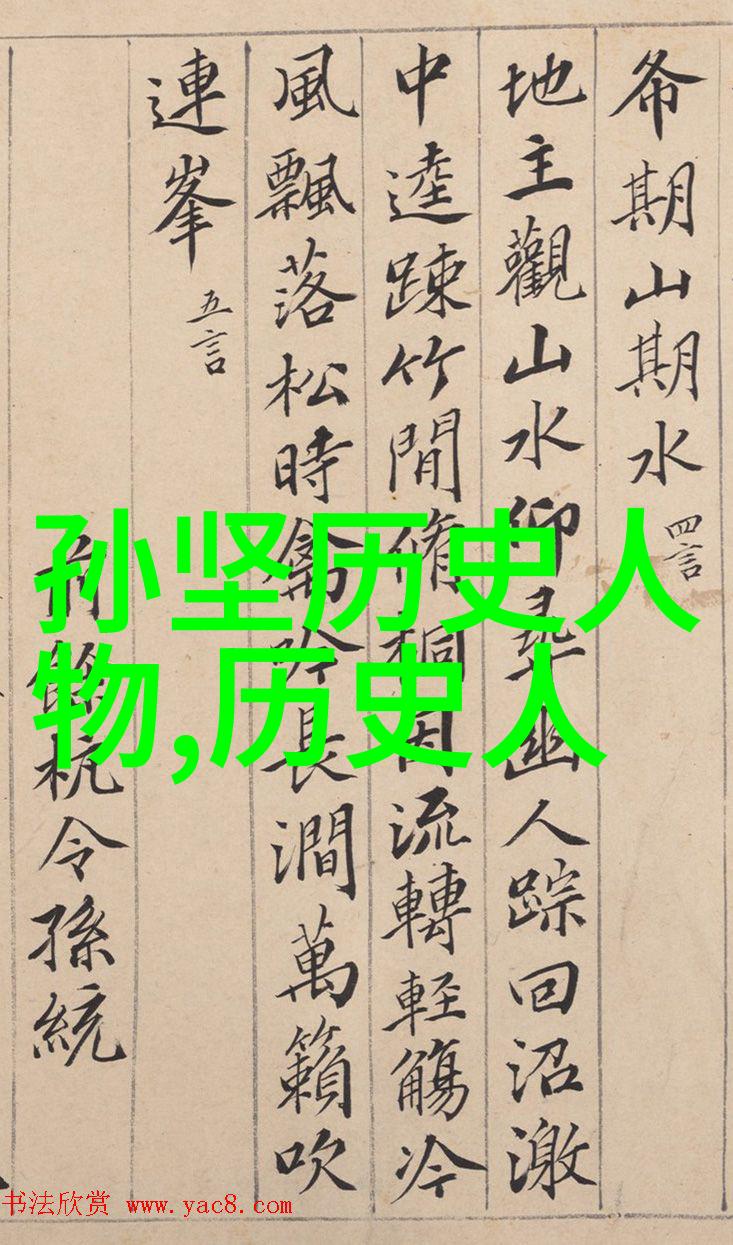 希期山期水 四言
地主觀山水仰尋幽人踪回沼激
中逵踈竹閒脩桐因流轉輕觴冷
風飄落松時禽吟長澗萬籟吹
連峯 五言
前餘杭令孫統
孙坚历史人
物,历史人
书法欣赏 www.yac8.com